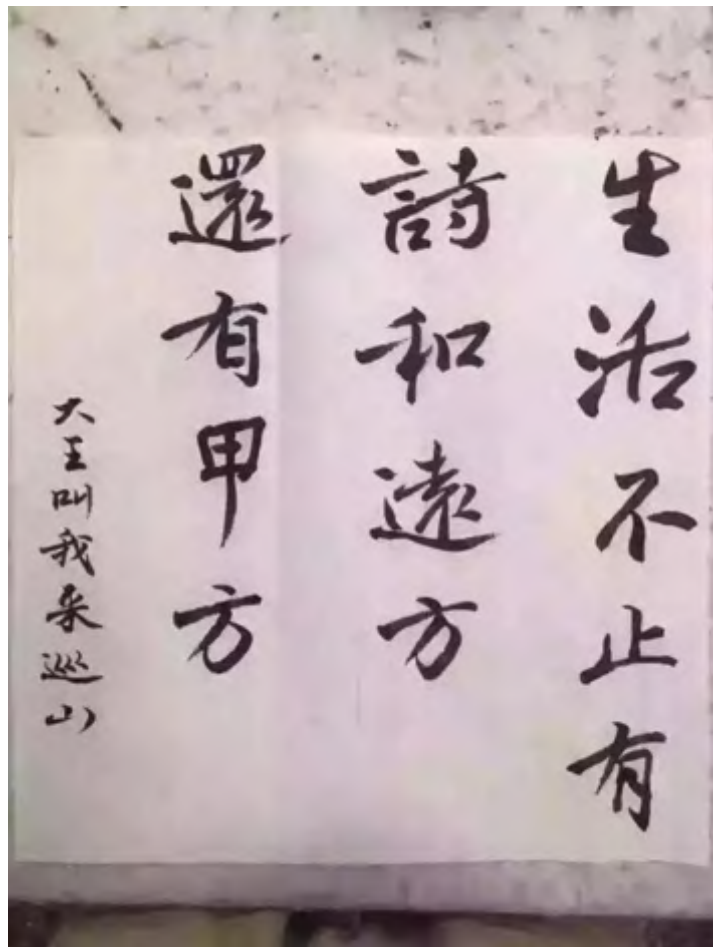 生活不止有
詩和遠方
還有甲方
大王叫我来巡山